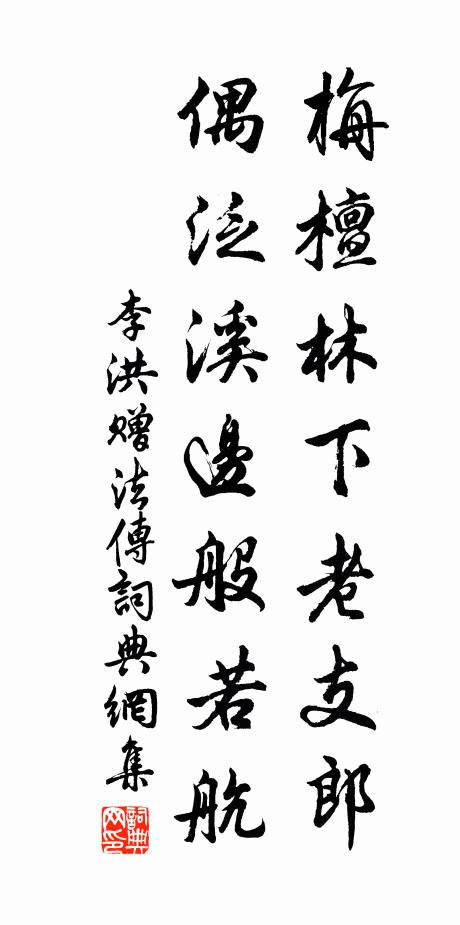 梅檀林下老支郎
偶泛溪邊般若航
李洪贈法傳詞典網集
詞典网印